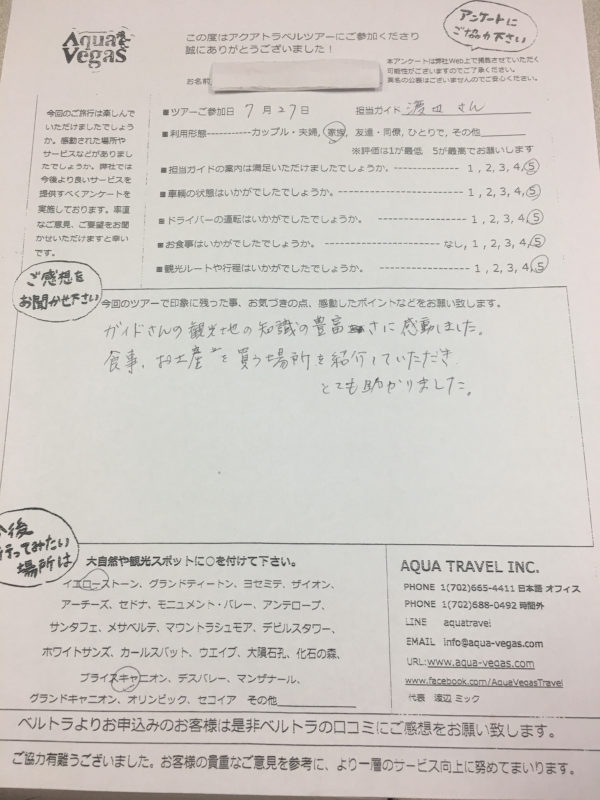 Aqua Vegas
この度はアクアトラベルツアーにご参加くださり
誠にありがとうございました！
アンケートに
ご協力下さい
本アンケートは弊社Web上で掲載させていただく
可能性がございますのでご了承ください。
実名の公表はございませんのでご安心ください。
お名前
今回のご旅行は楽しんで
いただけましたでしょう
か。感動された場所や
サービスなどがありまし
たでしょうか。弊社では
今後より良いサービスを
提供すべくアンケートを
実施しております。率直
なご意見、ご要望をお聞
かせいただけますと幸い
です。
■ツアーご参加日 7月27日 担当ガイド 渡辺さん
■利用形態-----------カップル・夫婦, 家族, 友達・同僚, ひとりで, その他
※評価は1が最低 5が最高でお願いします
■担当ガイドの案内は満足いただけましたでしょうか。---------- 1 , 2, 3, 4, 5
■車輌の状態はいかがでしたでしょうか。-------------------- 1, 2, 3, 4, 5
■ドライバーの運転はいかがでしたでしょうか。-------------- 1, 2, 3, 4, 5
■お食事はいかがでしたでしょうか。-------------------- なし, 1 , 2, 3, 4, 5
■観光ルートや行程はいかがでしたでしょうか。-------------- 1, 2, 3, 4, 5
ご感想を
お聞かせ下さい
今回のツアーで印象に残った事、お気づきの点、感動したポイントなどをお願い致します。
ガイドさんの観光地の知識の豊富さに感動しました。
食事、お土産を買う場所を紹介していただき
とても助かりました。
今後
行ってみたい
場所は
大自然や観光スポットに○を付けて下さい。
イエローストーン、グランドティートン、ヨセミテ、ザイオン、
アーチーズ、セドナ、モニュメント・バレー、アンテロープ、
サンタフェ、メサベルデ、マウントラシュモア、デビルスタワー、
ホワイトサンズ、カールスバット、ウエイブ、大隕石孔、化石の森、
ブライスキャニオン、デスバレー、マンザナール、
グランドキャニオン、オリンピック、セコイア その他
AQUA TRAVEL INC.
PHONE 1(702)665-4411 日本語 オフィス
PHONE 1(702)688-0492 時間外
LINE aquatravel
EMAIL info@aqua-vegas.com
URL:www.aqua-vegas.com
www.facebook.com/AquaVegasTravel
代表 渡辺 ミック
ベルトラよりお申込みのお客様は是非ベルトラの口コミにご感想をお願い致します。
ご協力有難うございました。お客様の貴重なご意見を参考に、より一層のサービス向上に努めてまいります。